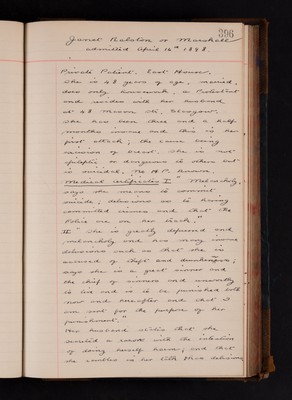 396
Janet Ralston or Marshall
admitted April 16th 1898
Private Patient. East House.
She is 48 years of age, married,
does only housework, a Protestant
and resides with her husband
at 48 St., Glasgow.
She has been three and a half
months insane and this is her
first attack; the cause being
of breast. She is not
epileptic or dangerous to others but
is suicidal. No H.P. known.
Medical Certificates I "Melancholy,
says she means to commit
suicide; delusions as to having
committed crimes and that the
Police are on her track."
II "She is greatly depressed and
melancholy and has many insane
delusions such as that she is
accused of theft and drunkenness;
says she is a great sinner and
the chief of sinners and unworthy
to live and is to be punished both
now and hereafter and that I
am sent for the purpose of her
punishment."
Her husband states that she
secreted a with the intention
of doing herself harm; and that
she in her delusions